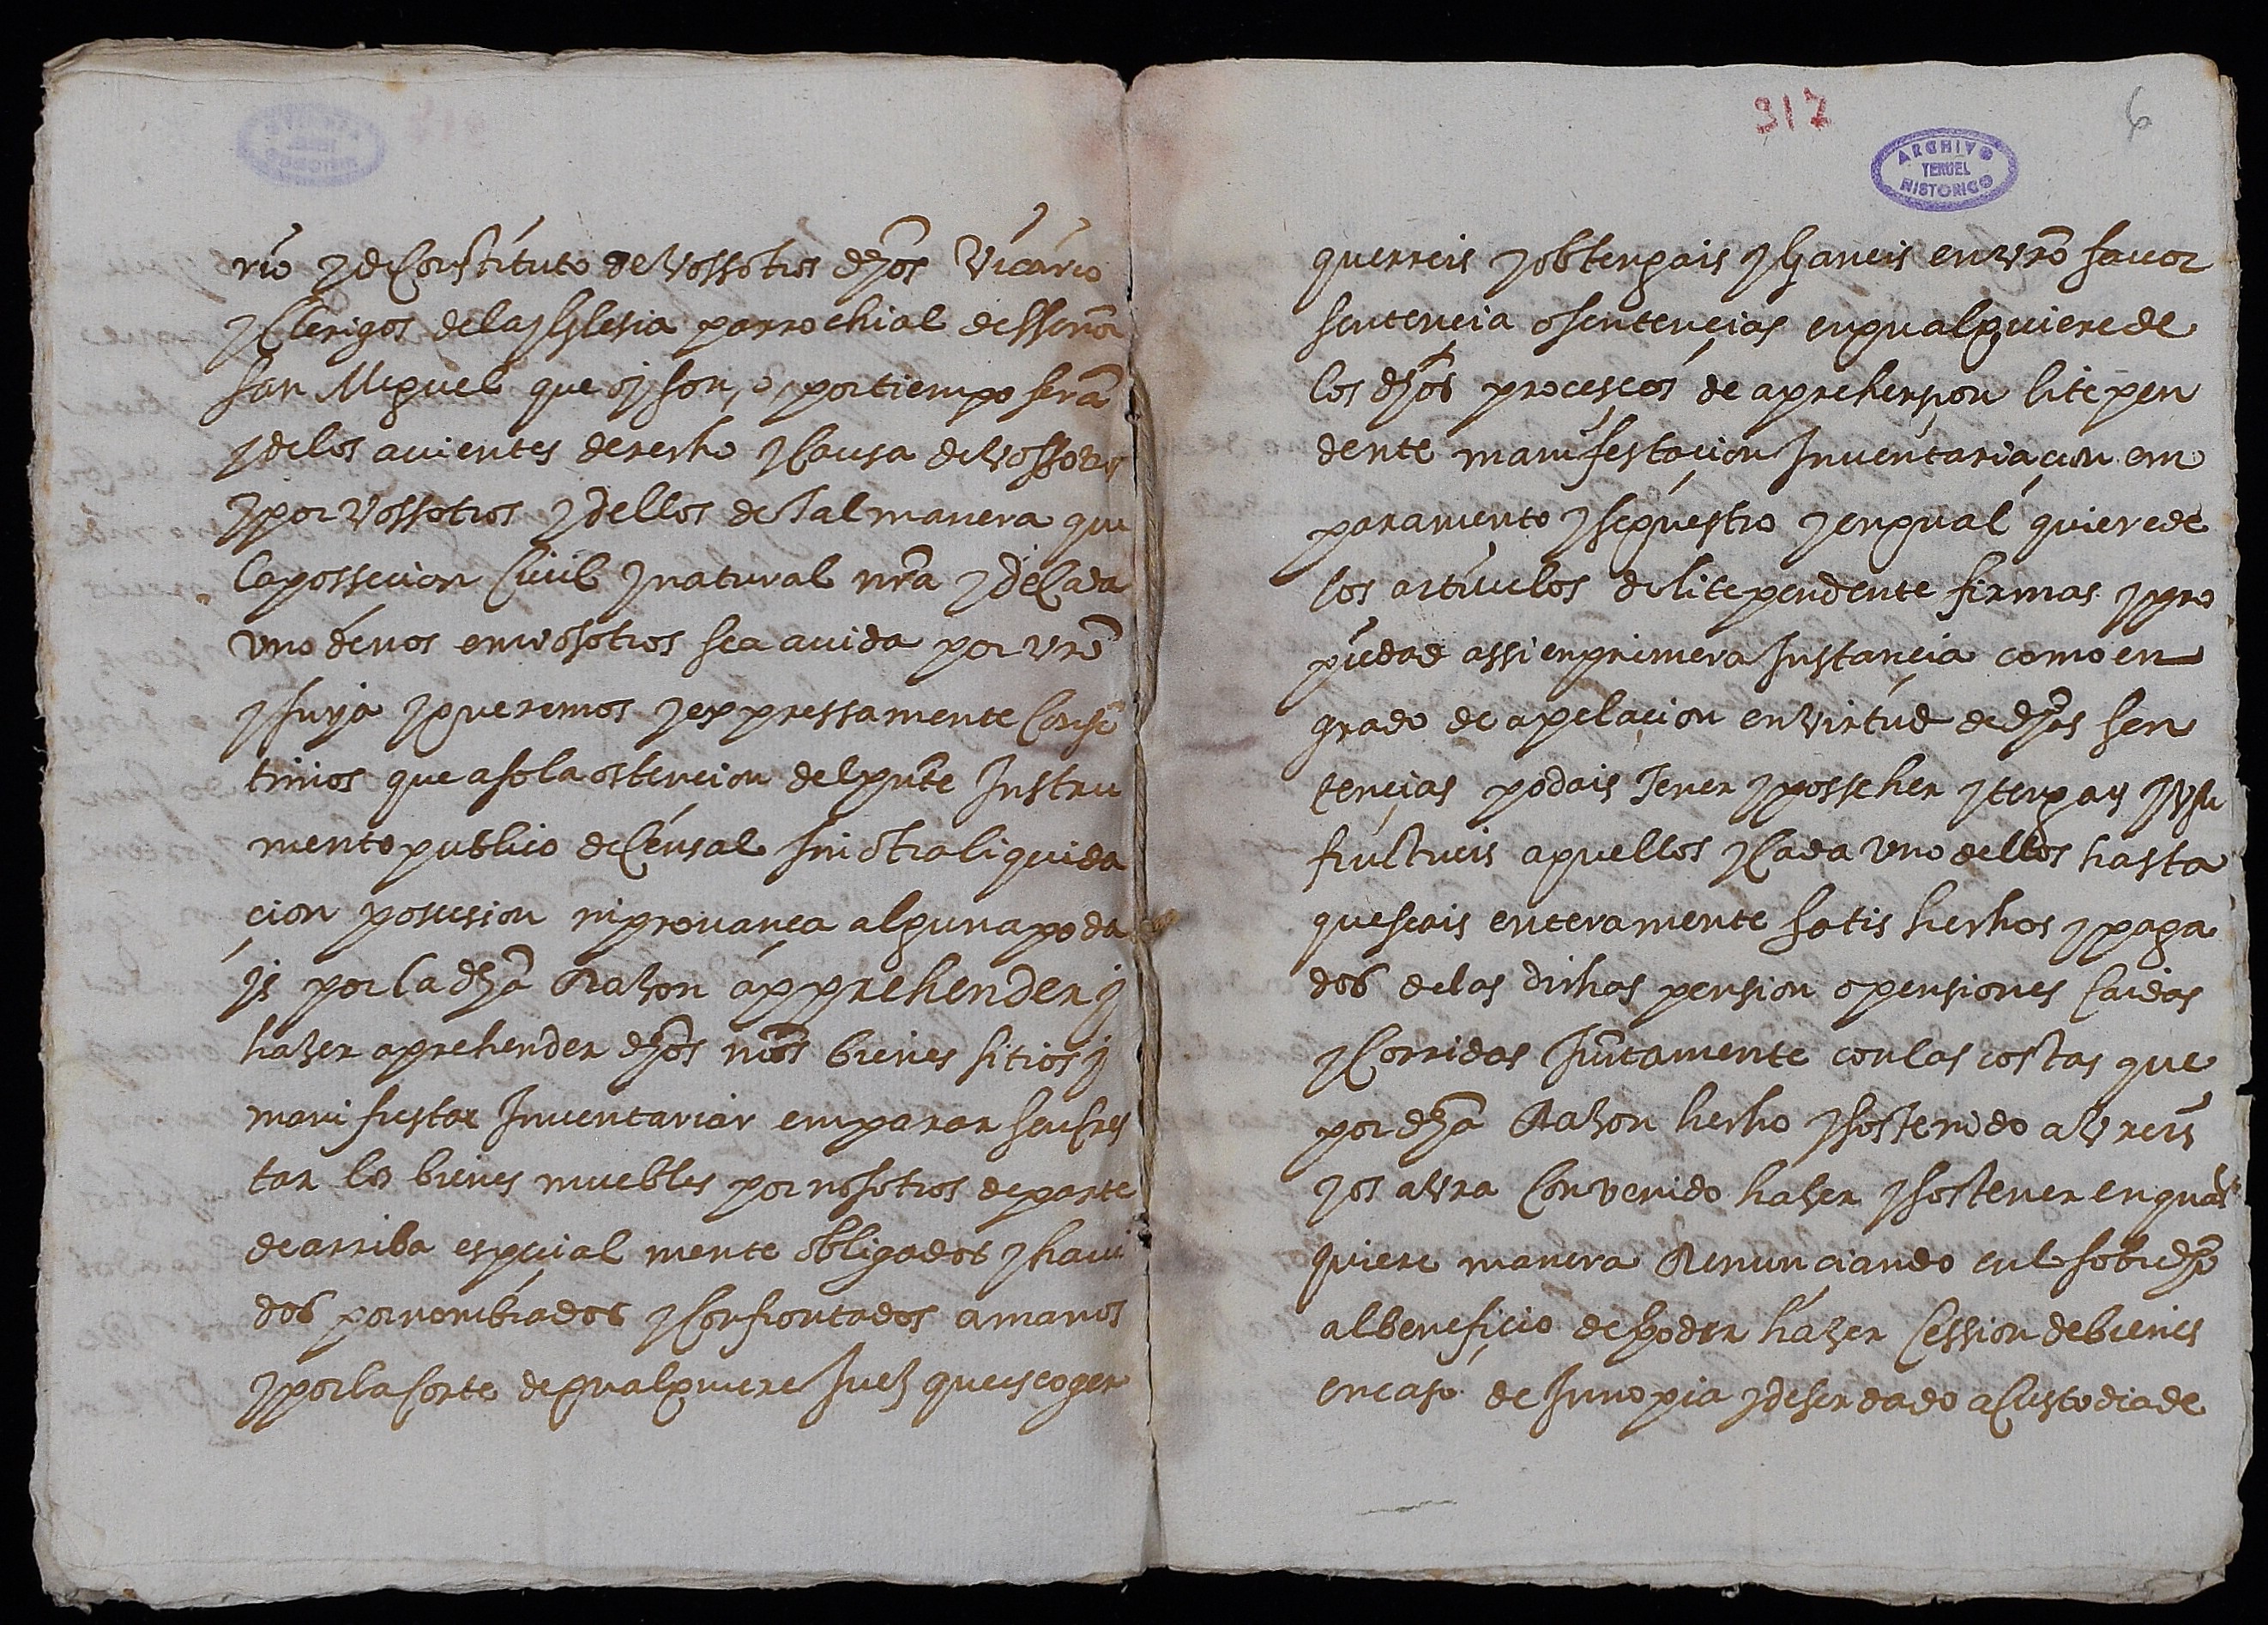 rio y de Constituto de vossotros dhos Vicario
y Clerigos de la yglesia parrochial de señor
san Miguel que oy son, o, por tiempo seran
y de los auientes derecho y causa de vossotros
y por vossotros y dellos de tal manera que
la possecion Ciuil y natural nra y de Cada
vno de nos en vosotros sea auida por vrã
y suya y queremos y expressamente Conse
timos que a sola ostencion del pnte Instru
mento publico de Censal sin otra liquida
cion posesion ni prouança alguna poda
ys por la dha Razon apprehender y
hazer aprehender dhos nros bienes sitios y
manifestar Inuentariar emparar secres
tar los bienes muebles por nosotros de parte
de arriba especial mente obligados y haui
dos por nombrados y Confrontados a manos
y por la corte de qualquiere Juez que escoger
317
6
ARCHIVO
TERUEL
HISTORICO
querreis y obtengais y ganeis en vrõ fauor
sentencia o sentencias en qualquiere de
los dhos processos de aprehension lite pen
dente manifestacion Inuentariacion em
paramento y sequestro y en qual quiere de
los articulos de lite pendente firmas y pro
piedad assi en primera Instancia como en
grado de apelacion en virtud de dhas sen
tencias podais Tener y posseher y tengays y vsu
fructueis aquellos y Cada vno dellos hasta
que seais enteramente satis hechos y paga
dos de las dichas pension o pensiones Caidas
y Corridas Juntamente con las costas que
por dha Razon hecho y sostenido aureis
y os aura Convenido hazer y sostener en qual
quiere manera Renunciando en lo sobredho
al beneficio de poder hazer Cession de bienes
en caso de Innopia y de ser dado a Custodia de